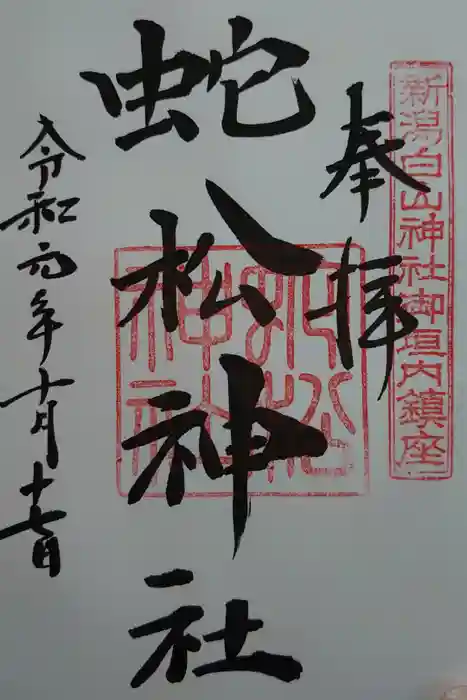 新潟白山神社御垣内鎮座
奉拝
蛇松神社
蛇松神社
令和元年十月十七日